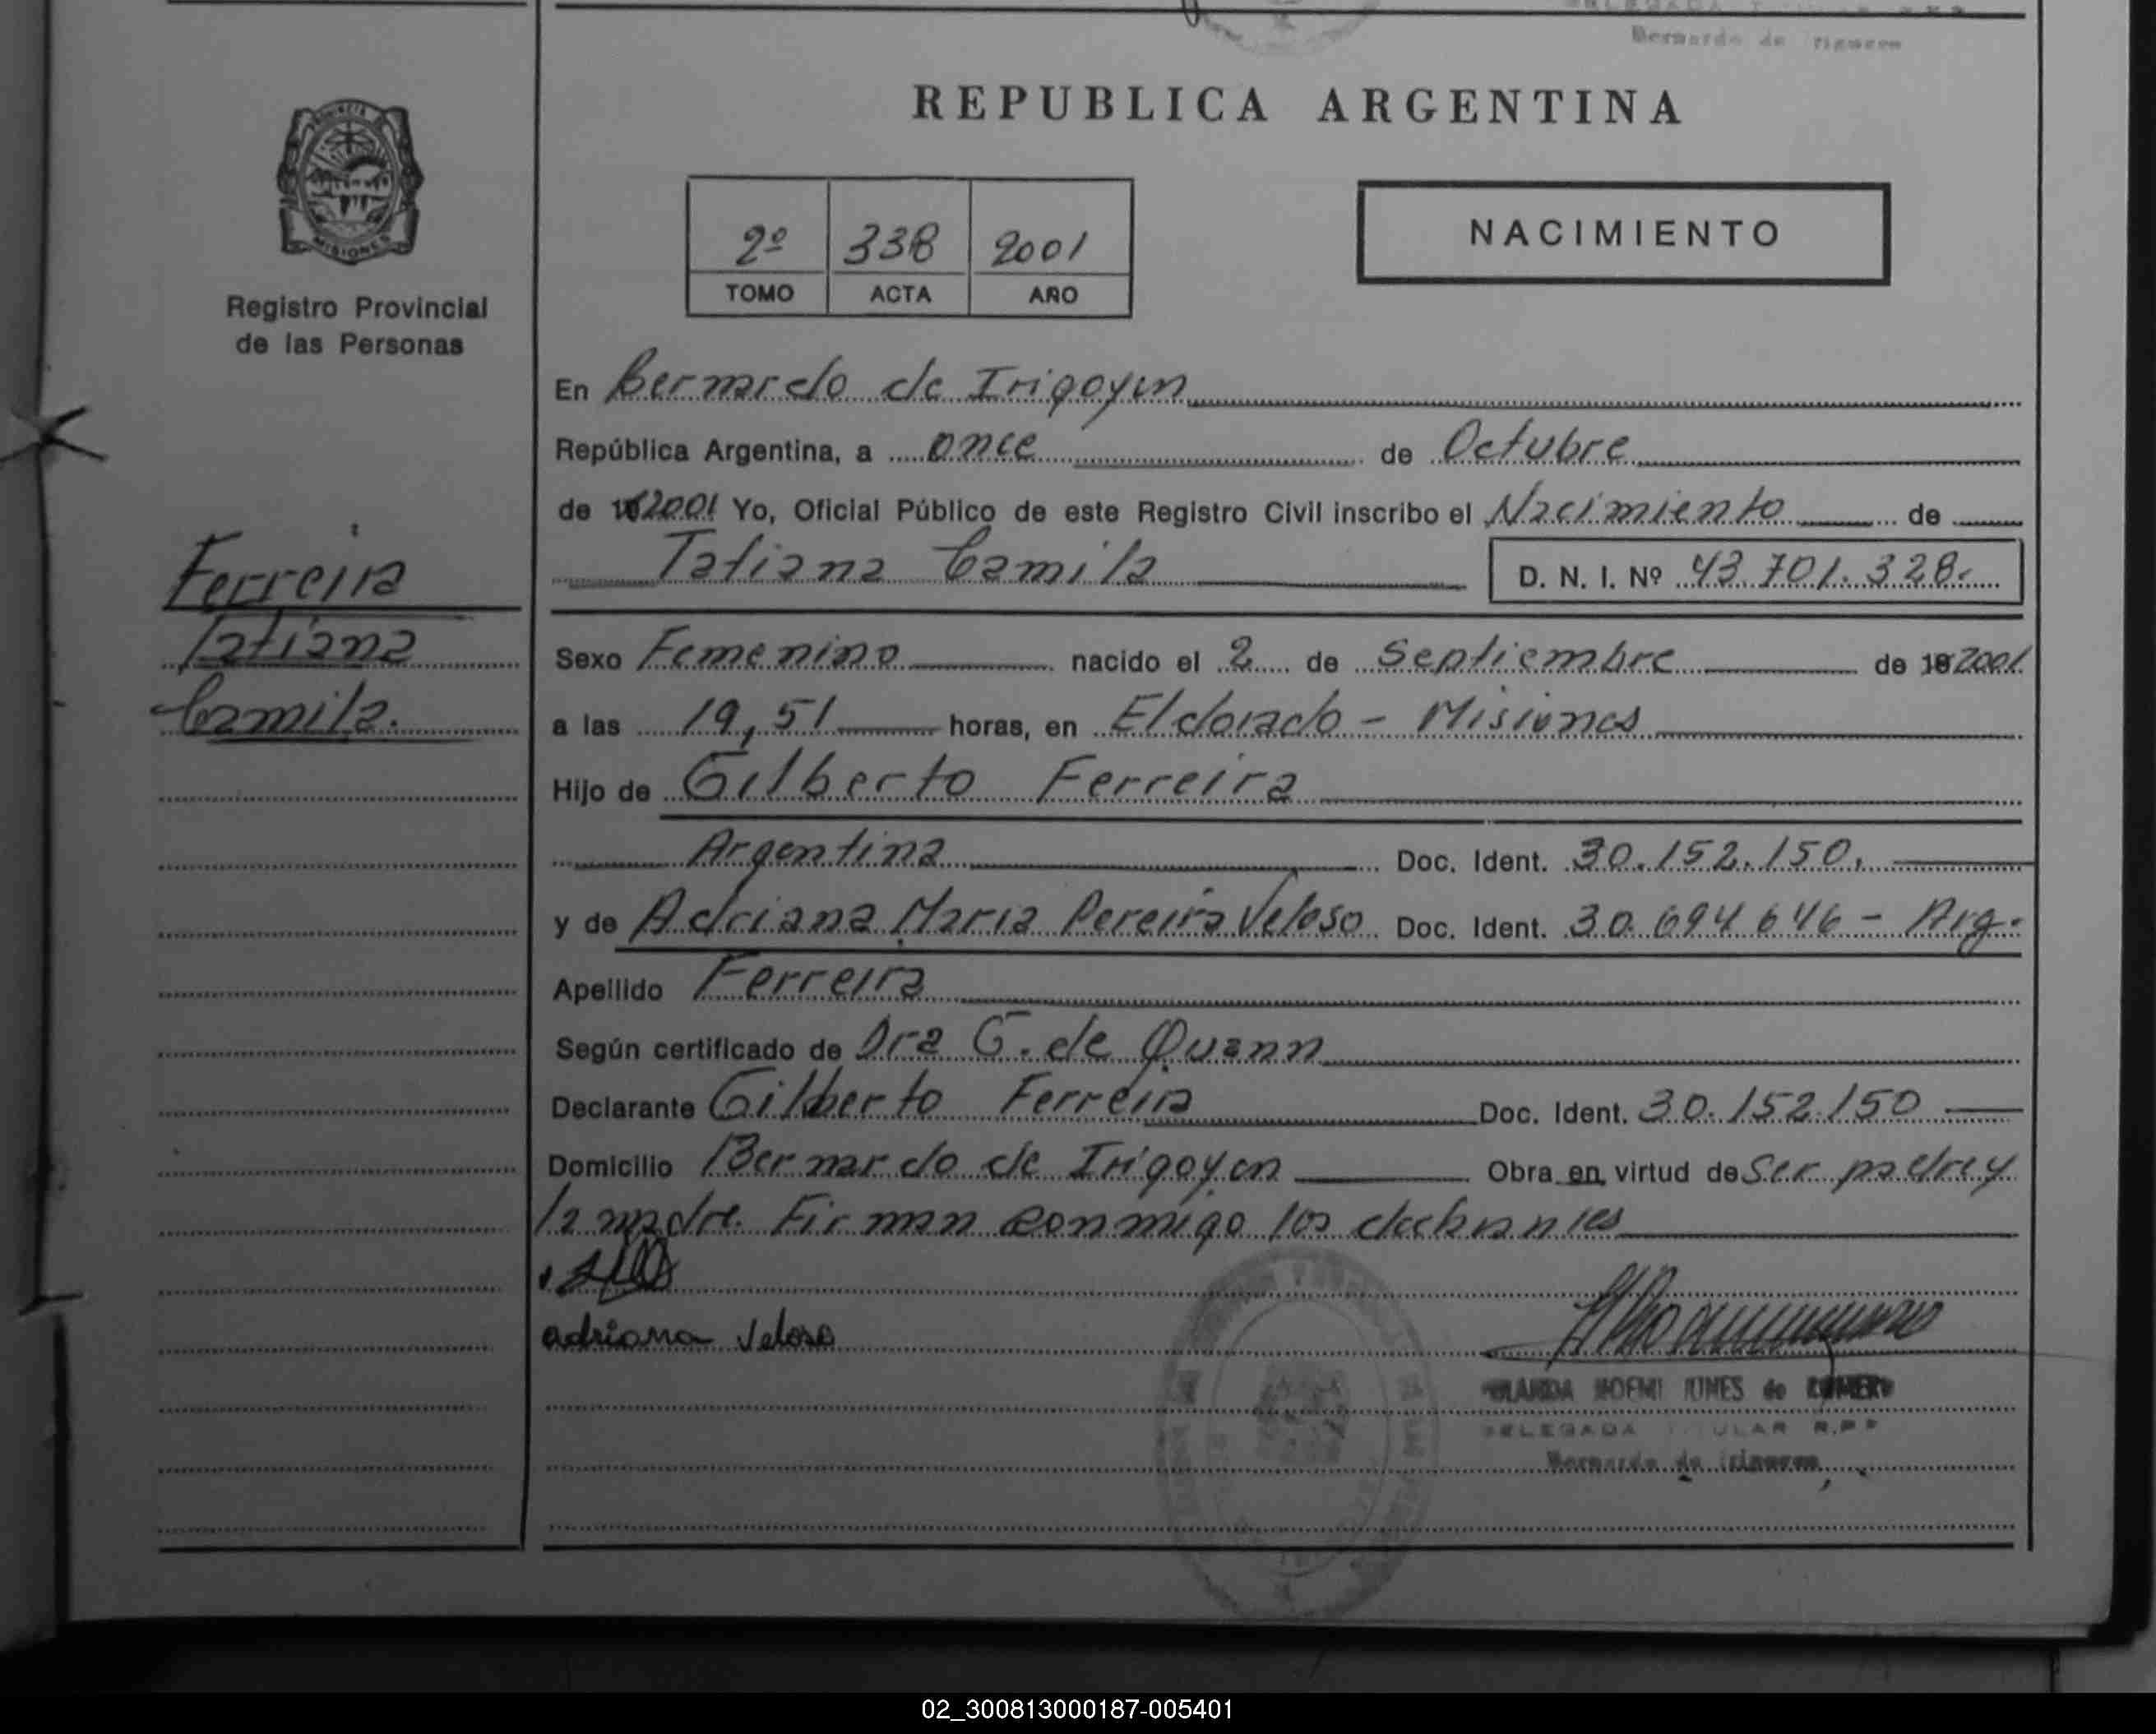 Bernardo de
REPUBLICA ARGENTINA
PROVINCIA DE
MISIONES
Registro Provincial
de las Personas
2º 338 2001
TOMO ACTA AÑO
NACIMIENTO
En Bernardo de Irigoyen
República Argentina, a once de Octubre
de 2001 Yo, Oficial Público de este Registro Civil inscribo el Nacimiento de
Tatiana Camila D. N. I. Nº 43.701.328.
Ferreira
Tatiana
Camila.
Sexo Femenino nacido el 2 de Septiembre de 2001
a las 19,51 horas, en Eldorado - Misiones
Hijo de Gilberto Ferreira
Argentina Doc. Ident. 30.152.150.
y de Adriana Maria Pereira Veloso Doc. Ident. 30.694 646 - Arg.
Apellido Ferreira
Según certificado de Dra G. de Quann
Declarante Gilberto Ferreira Doc. Ident. 30.152.150
Domicilio Bernardo de Irigoyen Obra en virtud de ser padre y
la madre. Firman conmigo los declarantes
adriana Veloso
NOEMI de ROMERO
DELEGADA TITULAR R.P.P
Bernardo de Irigoyen
02_300813000187-005401